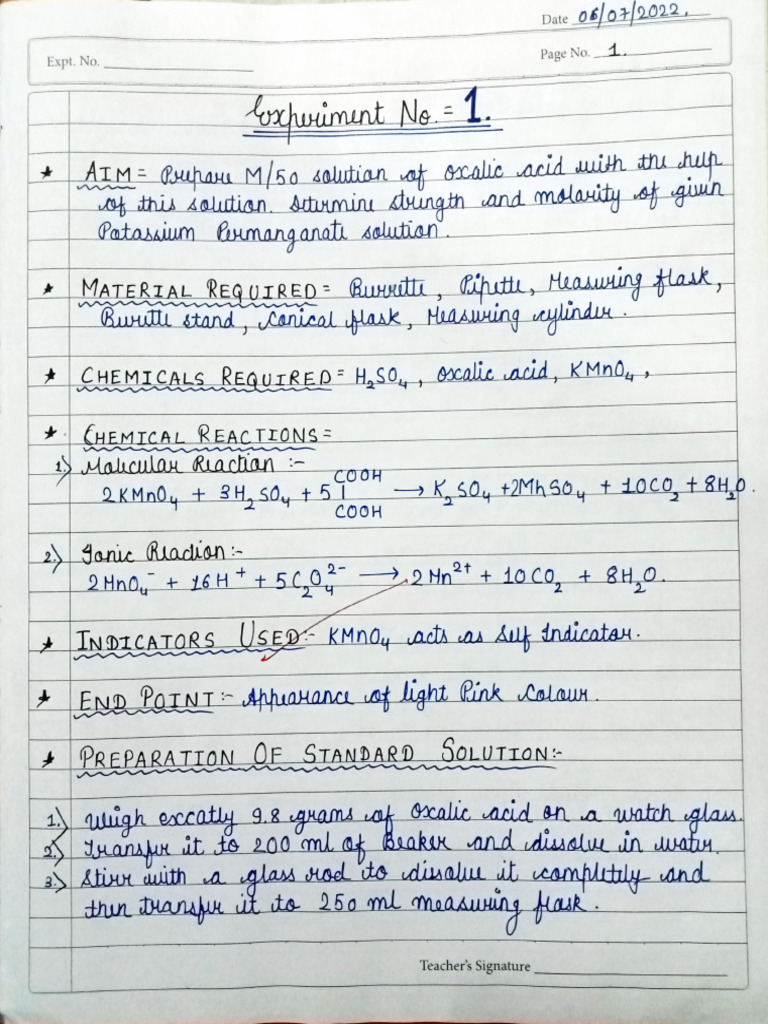 Date 06/07/2022.
Expt. No.
Page No. 1.
Experiment No. = 1.
★ AIM = Prepare M/50 solution of oxalic acid with the help
of this solution. Determine strength and molarity of given
Potassium Permanganate solution.
★ MATERIAL REQUIRED = Burrette, Pipette, Measuring flask,
Burette stand, Conical flask, Measuring cylinder.
★ CHEMICALS REQUIRED = H₂SO₄, Oxalic acid, KMnO₄,
★ CHEMICAL REACTIONS =
1.) Molecular Reaction :-
COOH
2KMnO₄ + 3H₂SO₄ + 5 | ⟶ K₂SO₄ + 2MnSO₄ + 10CO₂ + 8H₂O.
COOH
2.) Ionic Reaction :-
2MnO₄⁻ + 16H⁺ + 5C₂O₄²⁻ ⟶ 2Mn²⁺ + 10CO₂ + 8H₂O.
★ INDICATORS USED :- KMnO₄ acts as Self Indicator.
★ END POINT :- Appearance of light Pink Colour.
★ PREPARATION OF STANDARD SOLUTION :-
1.) Weigh exccatly 9.8 grams of Oxalic acid on a watch glass.
2.) Transfer it to 200 ml of Beaker and dissolve in water.
3.) Stirr with a glass rod to dissolve it completely and
then transfer it to 250 ml measuring flask.
Teacher's Signature